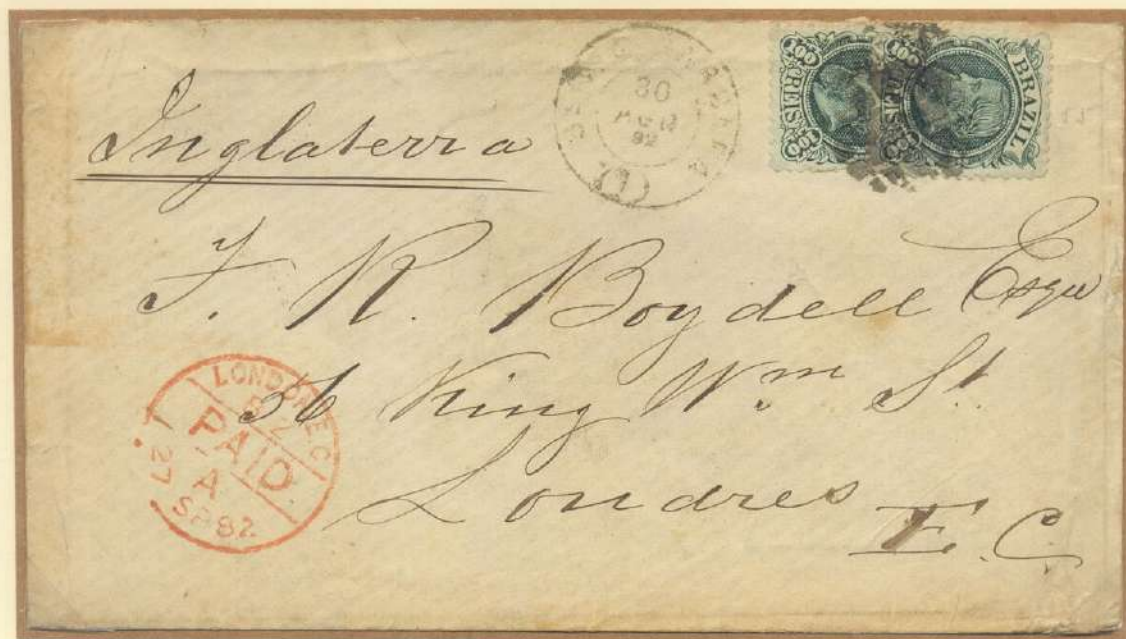 Inglaterra
30
AGO
82
100 REIS 100
BRAZIL
100 REIS 100
F. R. Boydell Esqre
36 King Wm St
Londres
E. C.
LONDON E.C
PAID
A
27
SP 82